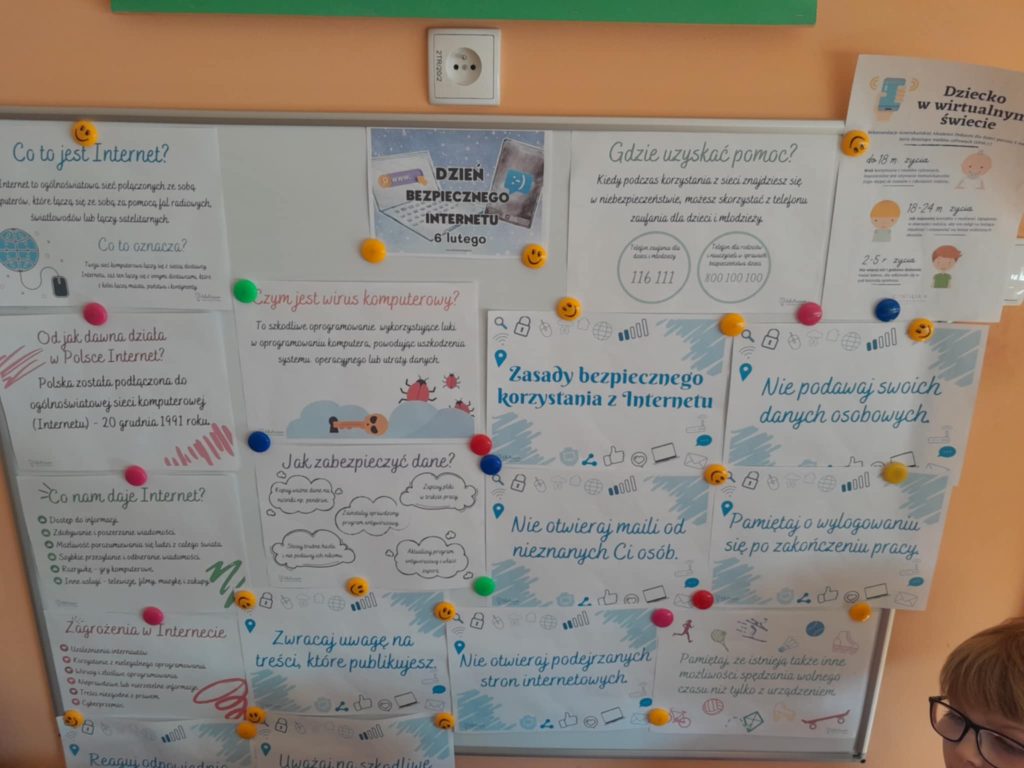 Co to jest Internet?
Internet to ogólnoświatowa sieć połączonych ze sobą
komputerów, które łączą się ze sobą za pomocą fal radiowych,
światłowodów lub łączy satelitarnych.
Co to oznacza?
DZIEŃ
BEZPIECZNEGO
INTERNETU
6 lutego
Gdzie uzyskać pomoc?
Kiedy podczas korzystania z sieci znajdziesz się
w niebezpieczeństwie, możesz skorzystać z telefonu
zaufania dla dzieci i młodzieży.
Telefon zaufania dla
dzieci i młodzieży
116 111
Telefon dla rodziców
i nauczycieli w sprawach
bezpieczeństwa dzieci
800 100 100
Dziecko
w wirtualnym
świecie
do 18 m. życia
18-24 m. życia
2-5 r. życia
Od jak dawna działa
w Polsce Internet?
Polska została podłączona do
ogólnoświatowej sieci komputerowej
(Internetu) - 20 grudnia 1991 roku.
Czym jest wirus komputerowy?
To szkodliwe oprogramowanie wykorzystujące luki
w oprogramowaniu komputera, powodując uszkodzenia
systemu operacyjnego lub utraty danych.
Zasady bezpiecznego
korzystania z Internetu
Nie podawaj swoich
danych osobowych.
Co nam daje Internet?
Dostęp do informacji.
Zdobywanie i poszerzanie wiadomości.
Możliwość porozumiewania się ludzi z całego świata.
Szybkie przesyłanie i odbieranie wiadomości.
Rozrywkę - gry komputerowe.
Inne usługi - telewizję, filmy, muzykę i zakupy.
Jak zabezpieczyć dane?
Kopiuj ważne dane na
nośniki np. pendrive.
Zapisuj pliki
w trakcie pracy.
Zainstaluj sprawdzony
program antywirusowy.
Stosuj trudne hasła
i nie podawaj ich nikomu.
Aktualizuj program
antywirusowy
Nie otwieraj maili od
nieznanych Ci osób.
Pamiętaj o wylogowaniu
się po zakończeniu pracy.
Zagrożenia w Internecie
Uzależnienie internautów.
Korzystanie z nielegalnego oprogramowania.
Wirusy i złośliwe oprogramowanie.
Nieprawdziwe lub nierzetelne informacje.
Treści niezgodne z prawem.
Cyberprzemoc.
Zwracaj uwagę na
treści, które publikujesz.
Nie otwieraj podejrzanych
stron internetowych.
Pamiętaj, że istnieją także inne
możliwości spędzania wolnego
czasu niż tylko z urządzeniem.
Reaguj odpowiednio
Uważaj na szkodliwe